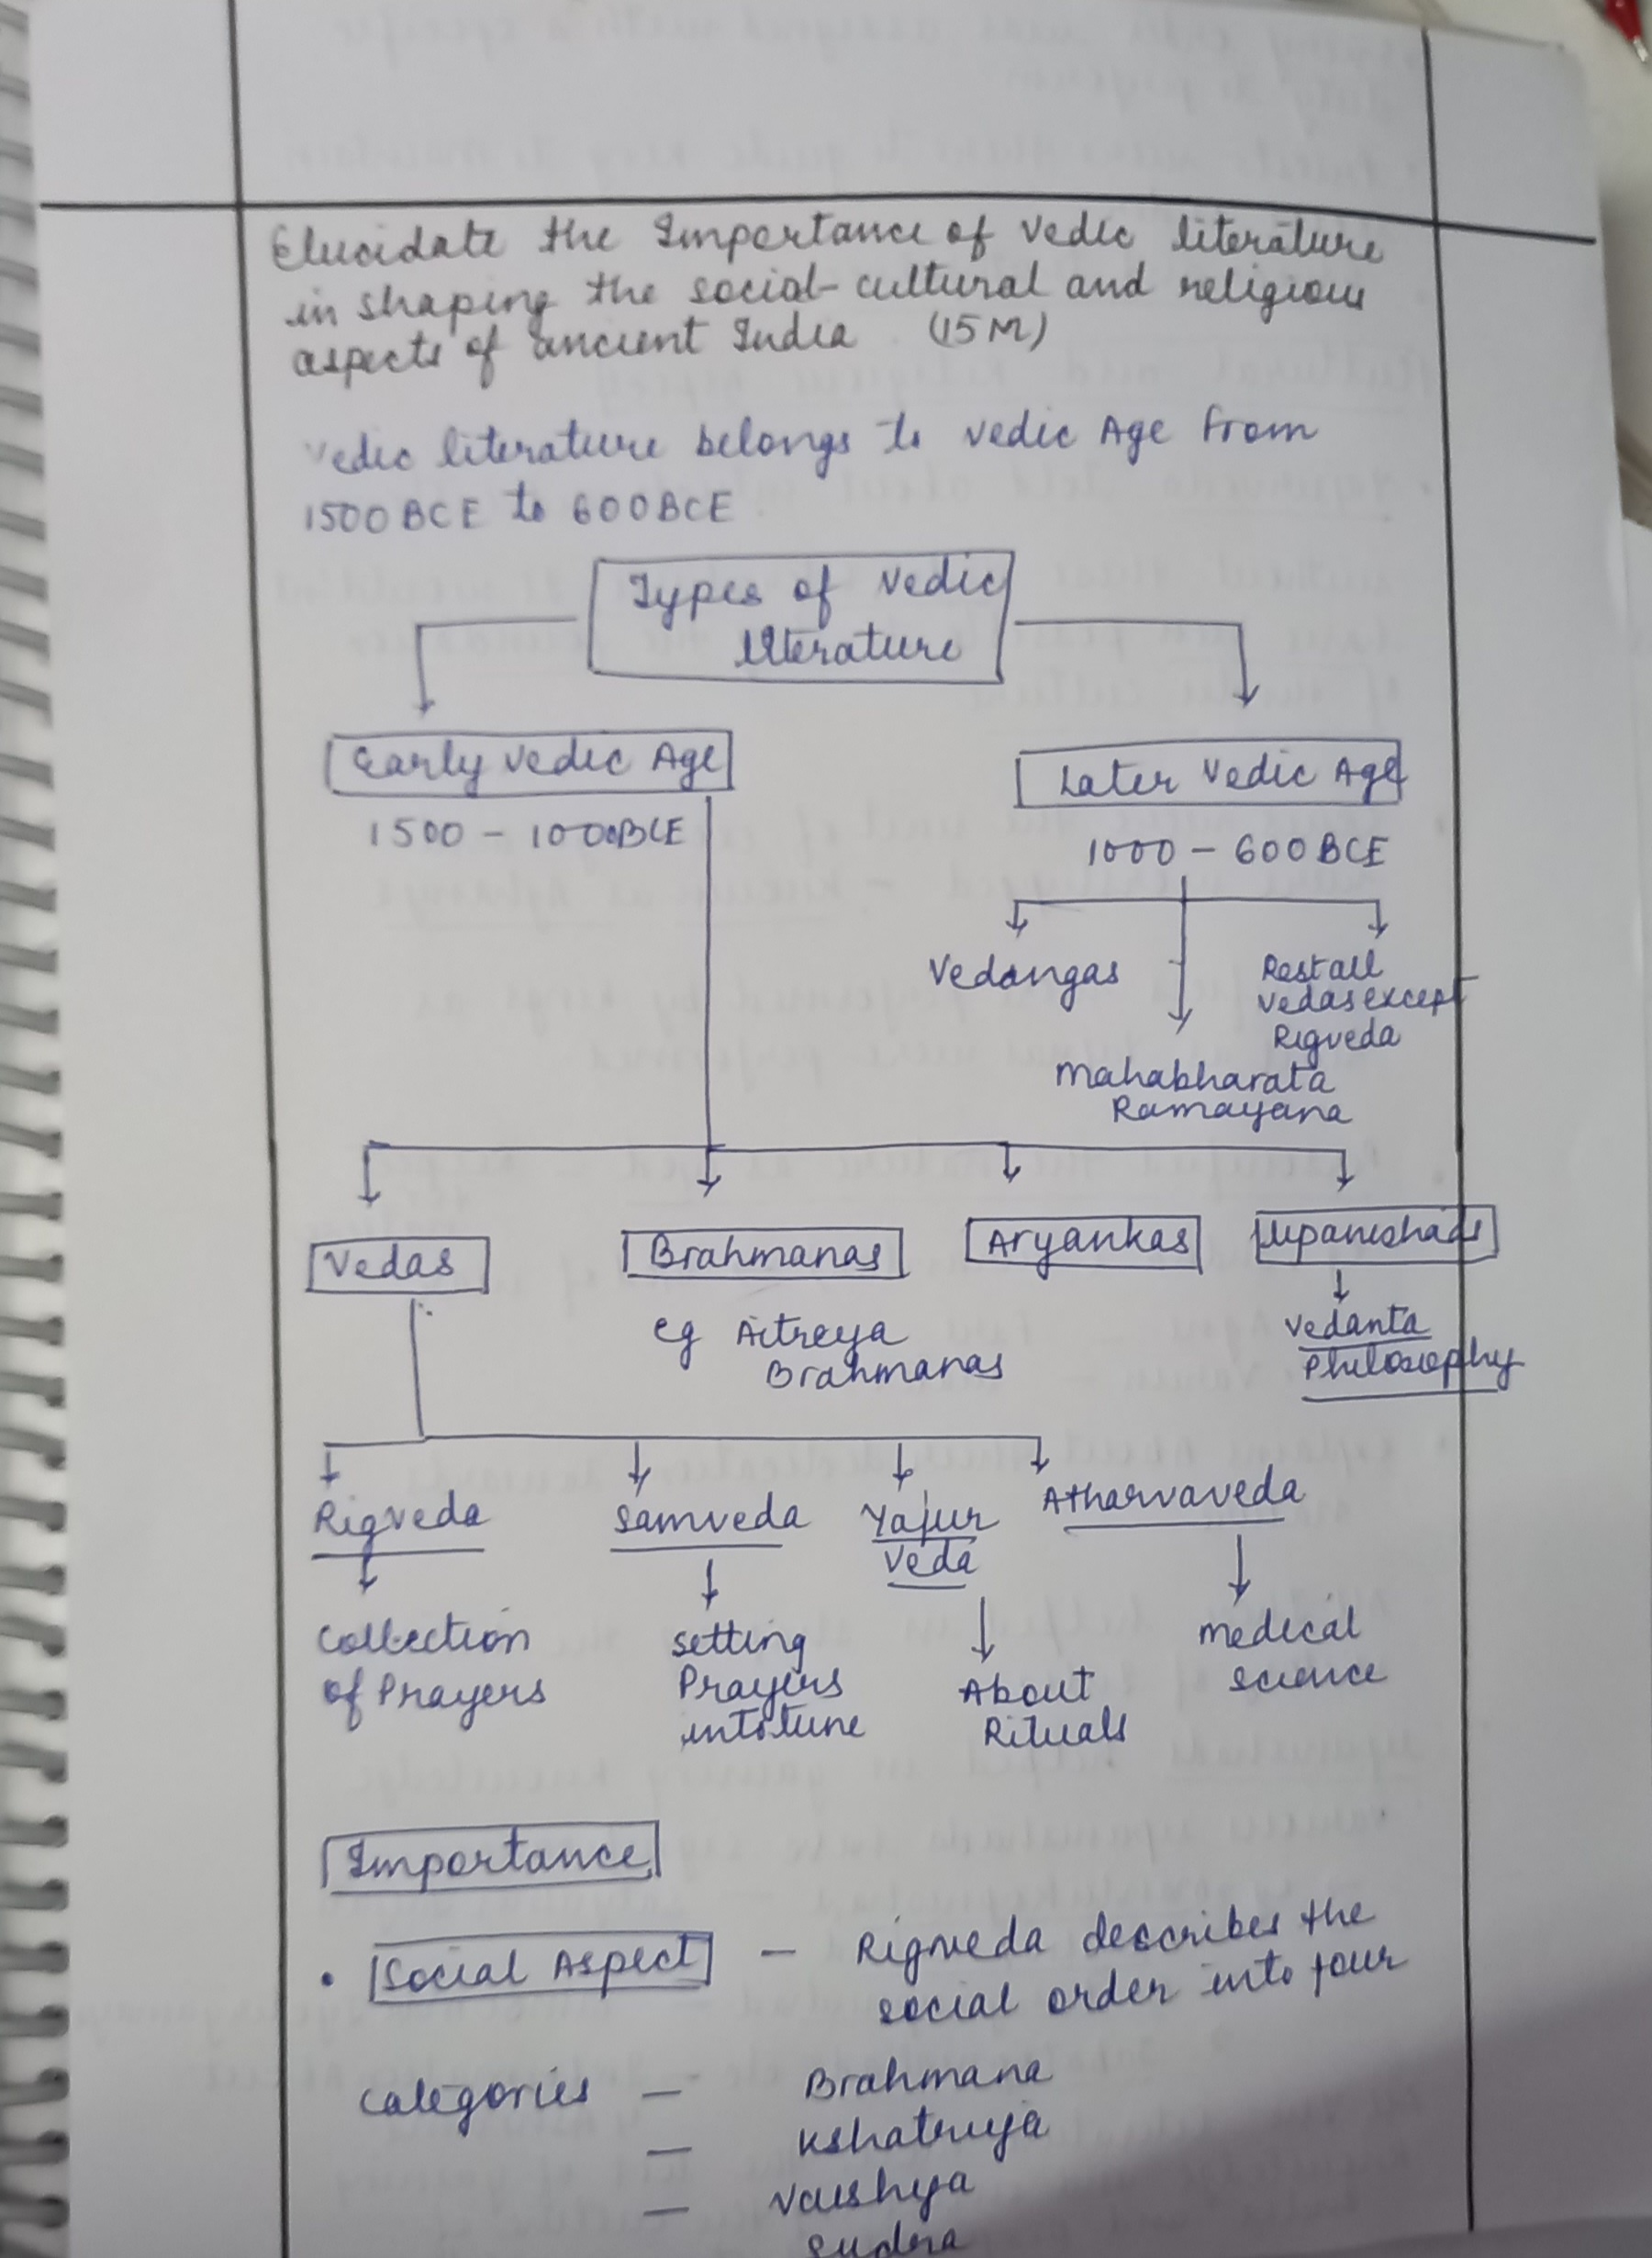 Elucidate the Importance of Vedic literature
in shaping the social-cultural and religious
aspects of ancient India (15M)
Vedic literature belongs to Vedic Age from
1500 BCE to 600 BCE
Types of Vedic
literature
Early Vedic Age
Later Vedic Age
1500 - 1000 BCE
1000 - 600 BCE
Vedangas
Rest all
Vedas except
Rigveda
Mahabharata
Ramayana
Vedas
Brahmanas
Aryankas
Upanishads
eg Aitreya
Brahmanas
Vedanta
Philosophy
Rigveda
Samveda
Yajur
Veda
Atharvaveda
Collection
of Prayers
setting
Prayers
into tune
About
Rituals
medical
science
Importance
• Social Aspect - Rigveda describes the
social order into four
categories - Brahmana
- Kshatriya
- Vaishya
Sudra